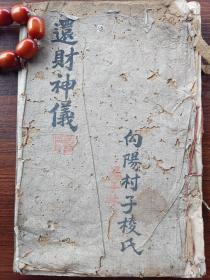 還財神儀
向陽村子棱氏